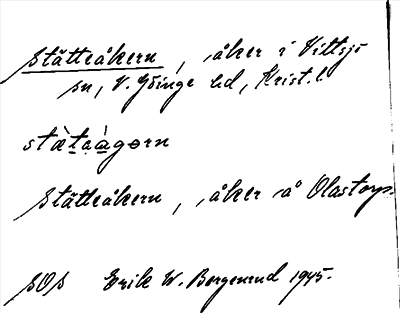 Stätteåkern, åker i Vittsjö
sn, V. Göinge hd, Krist. l.
stæ̀ta̠à̠gɵrn
Stätteåkern, åker å Olastorp.
SOS Erik W. Bergenrud 1945.